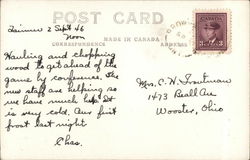 POST CARD
CORRESPONDENCE MADE IN CANADA ADDRESS
2 Sept 46
Noon
Hauling and chopping
wood to get ahead of the
game by conference. The
new staff are helping so
we have much help. It
is very cold. Our first
frost last night
Chas.
Mrs. C. H. Troutman
1473 Beall Ave
Wooster, Ohio
3 3